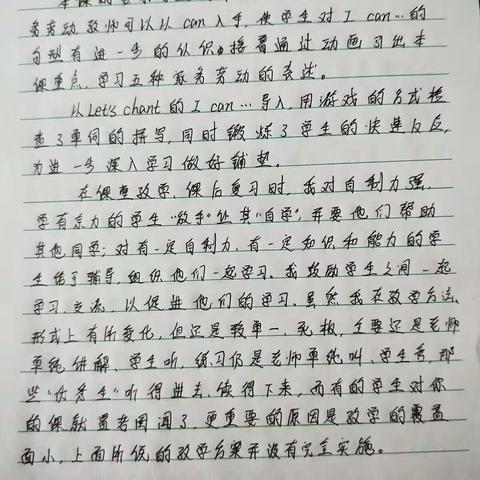 务劳动,教师可以从can入手,使学生对I can…的
句型有进一步的认识。接着通过动画引出本
课重点,学习五种家务劳动的表达。
从Let's chant的I can…导入,用游戏的方式检
查了单词的拼写,同时锻炼了学生的快速反应,
为进一步深入学习做好铺垫。
在课堂教学、课后复习时,我对自制力强、
学有余力的学生“放手”让其“自学”,并要他们帮助
其他同学;对有一定自制力、有一定知识和能力的学
生给予辅导,组织他们一起学习。我鼓励学生之间一起
学习、交流,以促进他们的学习。虽然我在教学方法、
形式上有所变化,但还是较单一、死板,主要还是老师
单纯讲解、学生听,练习仍是老师单纯叫、学生答,那
些“优秀生”听得进去,读得下来,而有的学生对你
的课就置若罔闻了,更重要的原因是教学的覆盖
面小,上面所说的教学方案并没有完全实施。